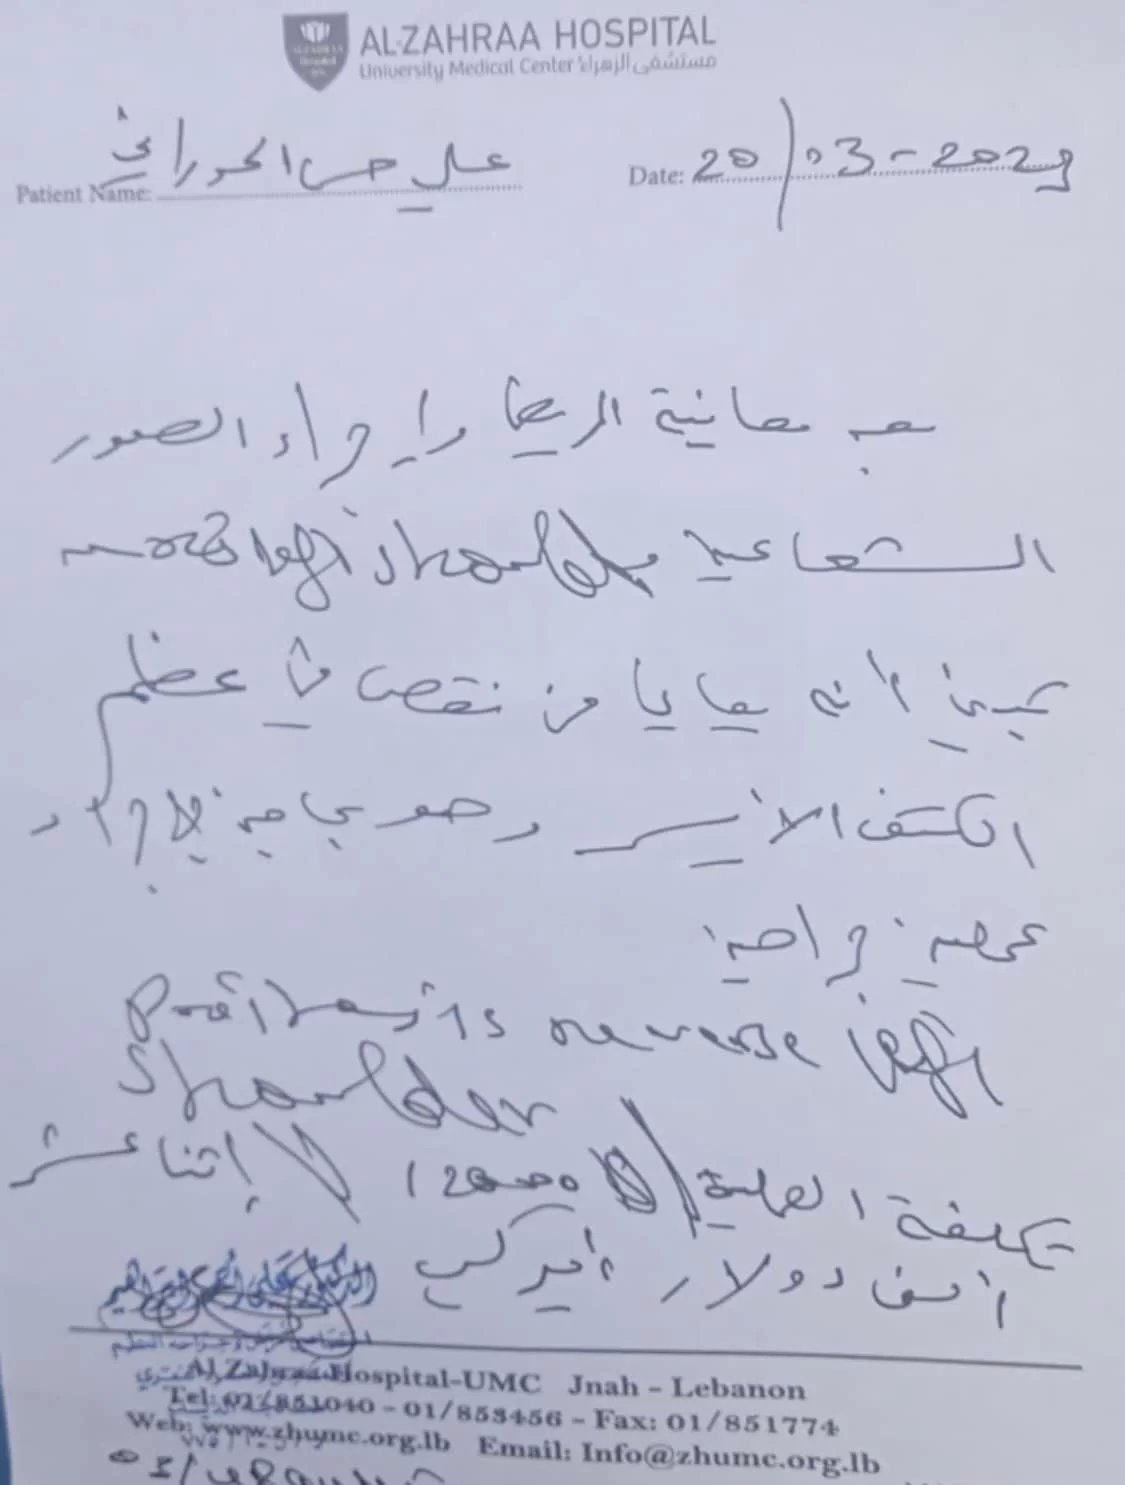 AL-ZAHRAA HOSPITAL
University Medical Center مستشفى الزهراء
Patient Name: علي حسن الحوراني
Date: 20/03-2029
بعد معاينة المريض وإجراء الصور
الشعاعية left shoulder
تبين انه يعاني من نقص في عظم
الكتف الأيسر وهو بحاجة لإجراء
عملية جراحية
Prothesis reverse left
Shoulder
تكلفة العملية 12000 إثنا عشر
ألف دولار أميركي
Al Zahraa Hospital-UMC Jnah - Lebanon
Tel: 01/851040 - 01/853456 - Fax: 01/851774
Web: www.zhumc.org.lb Email: Info@zhumc.org.lb